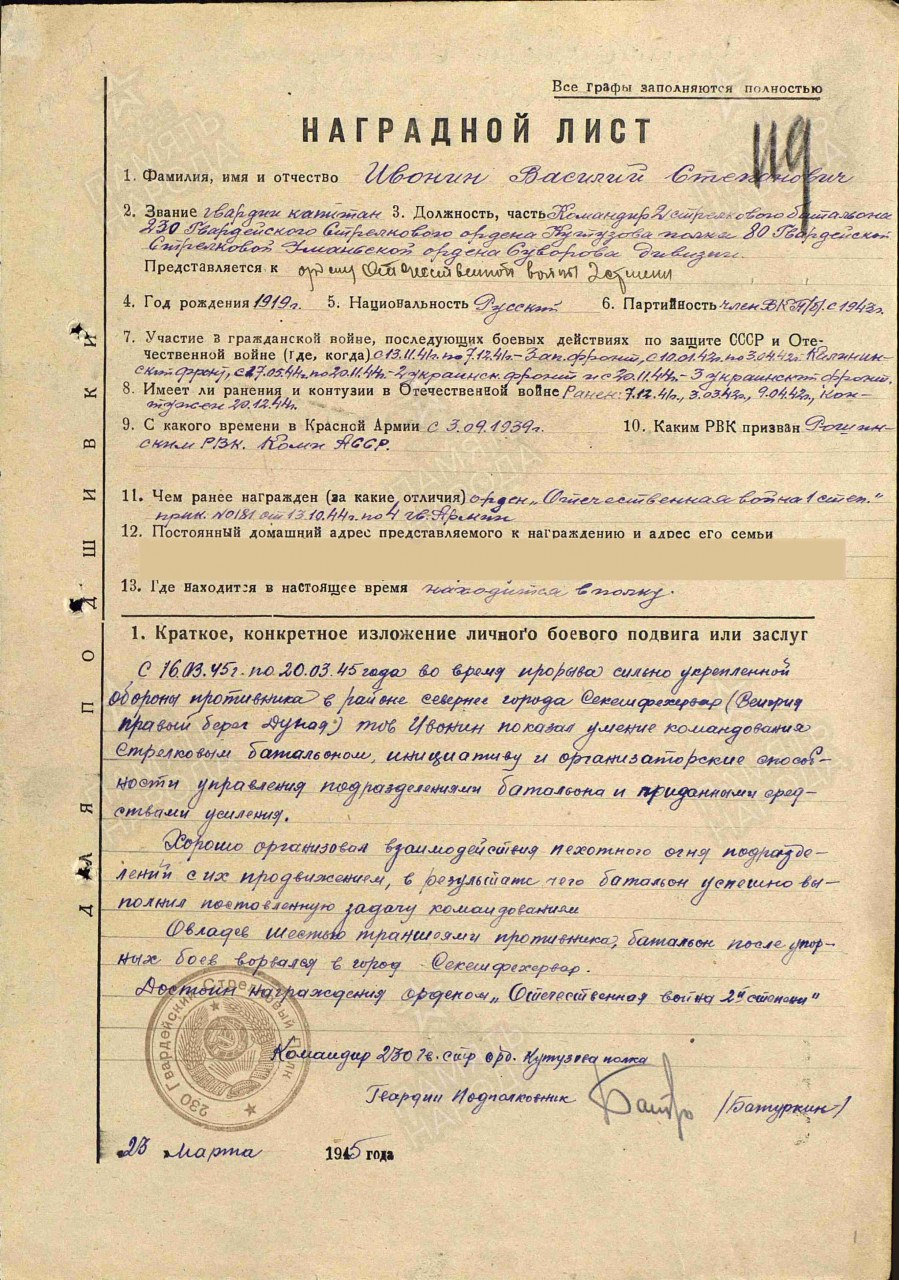 Все графы заполняются полностью
НАГРАДНОЙ ЛИСТ
119
1. Фамилия, имя и отчество Ивонин Василий Степанович
2. Звание гвардии капитан 3. Должность, часть Командир 2 стрелкового батальона
230 Гвардейского Стрелкового ордена Кутузова полка 80 Гвардейской
Стрелковой Уманьской ордена Суворова дивизии.
Представляется к ордену Отечественной войны 2 степени
4. Год рождения 1919г. 5. Национальность Русский 6. Партийность член ВКП(б) с 1943г.
7. Участие в гражданской войне, последующих боевых действиях по защите СССР и Оте-
чественной войне (где, когда) с 13.11.41г. по 7.12.41г- Зап. фронт, с 10.01.42г. по 3.04.42г. Калинин-
ский фронт, с 27.05.44г. по 20.11.44г.- 2 украинск. фронт и с 20.11.44г.- 3 украинский фронт.
8. Имеет ли ранения и контузии в Отечественной войне Ранен: 7.12.41г., 3.03.42г., 9.04.42г., кон-
тужен 20.12.44г.
9. С какого времени в Красной Армии с 3.09.1939г. 10. Каким РВК призван
ским РВК. Коми АССР.
11. Чем ранее награжден (за какие отличия) орден „Отечественная война 1 степ."
прик. №181 от 13.10.44г. по 4 гв. Армии
12. Постоянный домашний адрес представляемого к награждению и адрес его семьи
13. Где находится в настоящее время находится в полку.
1. Краткое, конкретное изложение личного боевого подвига или заслуг
С 16.03.45г. по 20.03.45 года во время прорыва сильно укрепленной
обороны противника в районе севернее города Секешфехервар (Венгрия
правый берег Дуная) тов Ивонин показал умение командования
стрелковым батальоном, инициативу и организаторские способ-
ности управления подразделениями батальона и приданными сред-
ствами усиления.
Хорошо организовал взаимодействия пехотного огня подразде-
лений с их продвижением, в результате чего батальон успешно вы-
полнил поставленную задачу командованием
Овладев шестью траншеями противника, батальон после упор-
ных боев ворвался в город Секешфехервар.
Достоин награждения орденом „Отечественная война 2й степени"
Командир 230 Гв. стр орд. Кутузова полка
Гвардии Подполковник /Батуркин/
230 Гвардейский Стрелковый Полк
23 Марта 1945 года
ДЛЯ ПОДШИВКИ
ПАМЯТЬ НАРОДА